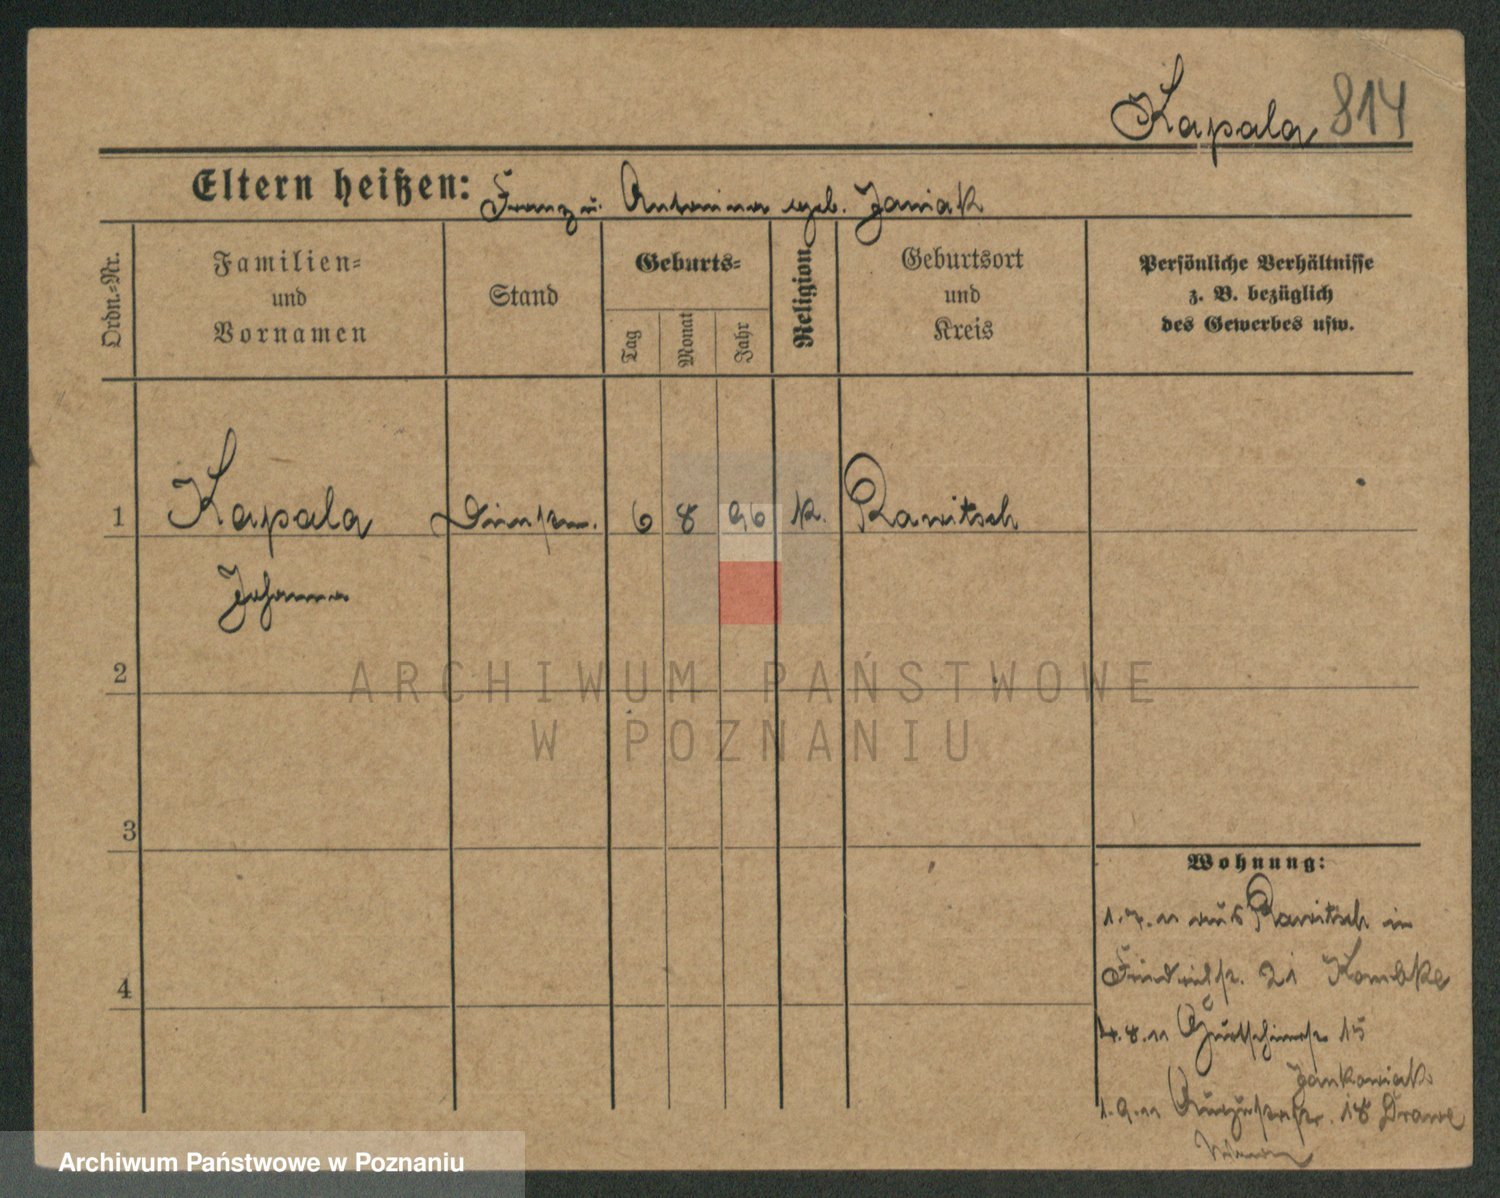 Kapala 814
Eltern heißen: Franz u. Antonina geb. Janiak
Ordn.-Nr.
Familien-
und
Vornamen
Stand
Geburts-
Tag
Monat
Jahr
Religion
Geburtsort
und
Kreis
Persönliche Verhältnisse
z. B. bezüglich
des Gewerbes usw.
1 Kapala 6 8 96 k. Rawitsch
Johanna
2
3
4
Wohnung:
1.7.11 aus Rawitsch in
Friedrichstr. 21
4.8.11 15
Jankowiak
1.9.11 18
ARCHIWUM PAŃSTWOWE
W POZNANIU
Archiwum Państwowe w Poznaniu